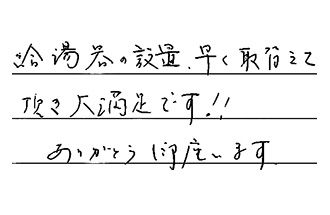 給湯器の設置、早く取替えて
頂き大満足です!!
ありがとう御座います